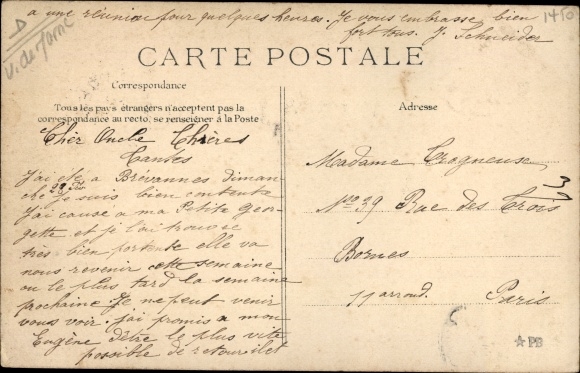 a une réunion pour quelques heures. Je vous embrasse bien
fort tous. J. Schneider
D
V. de Marne
1450
CARTE POSTALE
Correspondance
Tous les pays étrangers n'acceptent pas la
correspondance au recto, se renseigner à la Poste
Adresse
Cher Oncle Chères
Tantes
J'ai été a Brévannes diman
che je suis bien contente
J'ai causé a ma Petite Geor-
gette et je l'ai trouvée
très bien portante elle va
nous revenir cette semaine
ou le plus tard la semaine
prochaine. Je ne peut venir
vous voir. j'ai promis a mon
Eugène d'être le plus vite
possible de retour il et
Madame Crogneuse
No 39 Rue des Trois
Bornes
11 arrond. Paris
★PB